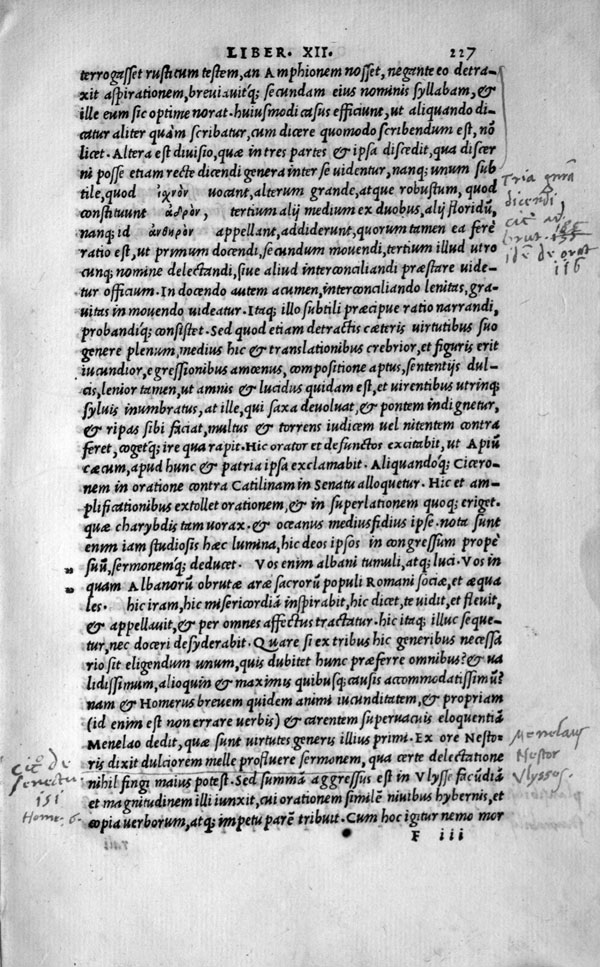 LIBER. XII. 227
terrogasset rusticum testem, an Amphionem nosset, negante eo detra-
xit aspirationem, breuiauitq; secundam eius nominis syllabam, &
ille eum sic optime norat. huiusmodi casus efficiunt, ut aliquando di-
catur aliter quàm scribatur, cum dicere quomodo scribendum est, nō
licet. Altera est diuisio, quæ in tres partes & ipsa discedit, qua discer
ni posse etiam recte dicendi genera inter se uidentur, nanq; unum sub
tile, quod ἰχνὸν uocant, alterum grande, atque robustum, quod
constituunt ἁδρὸν, tertium alij medium ex duobus, alij floridū,
nanq; id ἀνθηρὸν appellant, addiderunt, quorum tamen ea ferè
ratio est, ut primum docendi, secundum mouendi, tertium illud utro
cunq; nomine delectandi, siue aliud interconciliandi præstare uide-
tur officium. In docendo autem acumen, interconciliando lenitas, gra-
uitas in mouendo uideatur. Itaq; illo subtili præcipue ratio narrandi,
probandiq; consistet. Sed quod etiam detractis cæteris uirtutibus suo
genere plenum, medius hic & translationibus crebrior, et figuris erit
iucundior, egressionibus amœnus, compositione aptus, sententijs dul-
cis, lenior tamen, ut amnis & lucidus quidam est, et uirentibus utrinq;
syluis inumbratus, at ille, qui saxa deuoluat, & pontem indignetur,
& ripas sibi faciat, multus & torrens iudicem uel nitentem contra
feret, cogetq; ire qua rapit. Hic orator et defunctos excitabit, ut Apiū
cæcum, apud hunc & patria ipsa exclamabit. Aliquandoq; Cicero-
nem in oratione contra Catilinam in Senatu alloquetur. Hic et am-
plificationibus extollet orationem, & in superlationem quoq; eriget.
quæ charybdis tam uorax. & oceanus mediusfidius ipse. nota sunt
enim iam studiosis hæc lumina, hic deos ipsos in congressum propè
suū, sermonemq; deducet. Vos enim albani tumuli, atq; luci. Vos in
quam Albanorū obrutæ aræ sacrorū populi Romani sociæ, et æqua
les. hic iram, hic misericordiā inspirabit, hic dicet, te uidit, et fleuit,
& appellauit, & per omnes affectus tractatur. hic itaq; illuc seque-
tur, nec doceri desyderabit. Quare si ex tribus hic generibus necessa
rio sit eligendum unum, quis dubitet hunc præferre omnibus? & ua
lidissimum, alioquin & maximis quibusq; causis accommodatissimū?
nam & Homerus breuem quidem animi iucunditatem, & propriam
(id enim est non errare uerbis) & carentem superuacuis eloquentiā
Menelao dedit, quæ sunt uirtutes generis illius primi. Ex ore Nesto-
ris dixit dulciorem melle profluere sermonem, qua certe delectatione
nihil fingi maius potest. Sed summā aggressus est in Vlysse facūdiā
et magnitudinem illi iunxit, cui orationem similē niuibus hybernis, et
copia uerborum, atq; impetu parē tribuit. Cum hoc igitur nemo mor
F iii
Tria
dicendi,
cic
de orat
116
Menelaus
Nestor
Vlysses.
cic de
senectu
151
Home. 6.